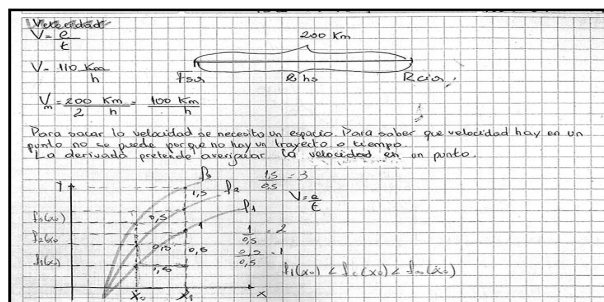 Velocidad
V = e/t
200 Km
V = 110 Km/h
2 hs
Rcia.
Vm = 200 Km / 2 h = 100 Km/h
Para sacar la velocidad se necesita un espacio. Para saber que velocidad hay en un
punto no se puede porque no hay un trayecto o tiempo.
La derivada pretende averiguar la velocidad en un punto.
y
f3
f2
f1
1,5/0,5 = 3
V = e/t
1,5
0,5
f2(x0)
1
1/0,5 = 2
f1(x0)
0,5
x0
x1
x